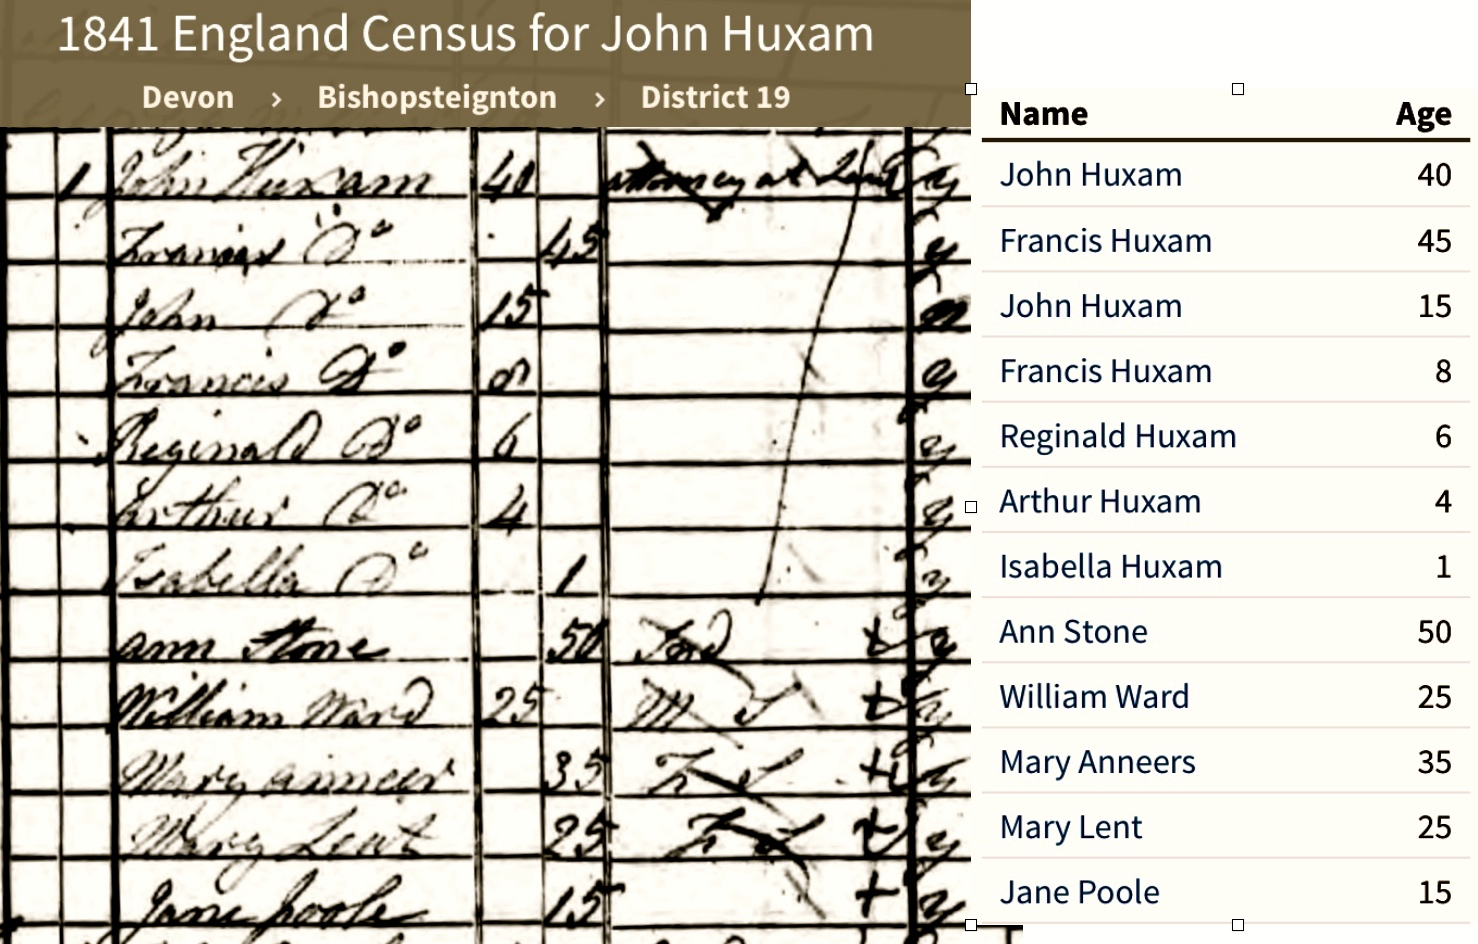 1841 England Census for John Huxam
Devon > Bishopsteignton > District 19
Name Age
1 John Huxam 40 attorney at Law y
John Huxam 40
Francis Do 45 y
Francis Huxam 45
John Do 15 n
John Huxam 15
Francis Do 8 y
Francis Huxam 8
Reginald Do 6 y
Reginald Huxam 6
Arthur Do 4 y
Arthur Huxam 4
Isabella Do 1 y
Isabella Huxam 1
ann Stone 50 Ind y
Ann Stone 50
William Ward 25 M S y
William Ward 25
Mary anneer 35 F S y
Mary Anneers 35
Mary Lent 25 F S y
Mary Lent 25
Jane poole 15 y
Jane Poole 15